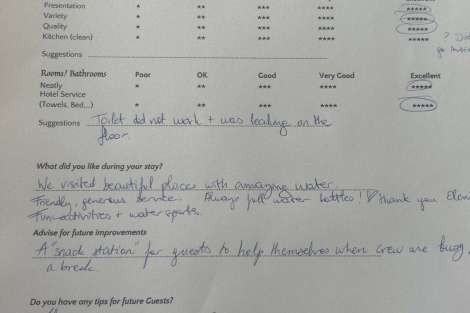 Presentation * ** *** **** *****
Variety * ** *** **** *****
Quality * ** *** **** *****
Kitchen (clean) * ** *** **** ***** ?
Suggestions
Rooms/ Bathrooms Poor OK Good Very Good Excellent
Neatly * ** *** **** *****
Hotel Service
(Towels, Bed...) * ** *** **** *****
Suggestions Toilet did not work + was leaking on the
floor.
What did you like during your stay?
We visited beautiful places with amazing water.
Friendly, generous service. Always full water bottles! ♡ Thank you
Fun activities + water sports.
Advise for future improvements
A "snack station" for guests to help themselves when crew are
a break.
Do you have any tips for future Guests?